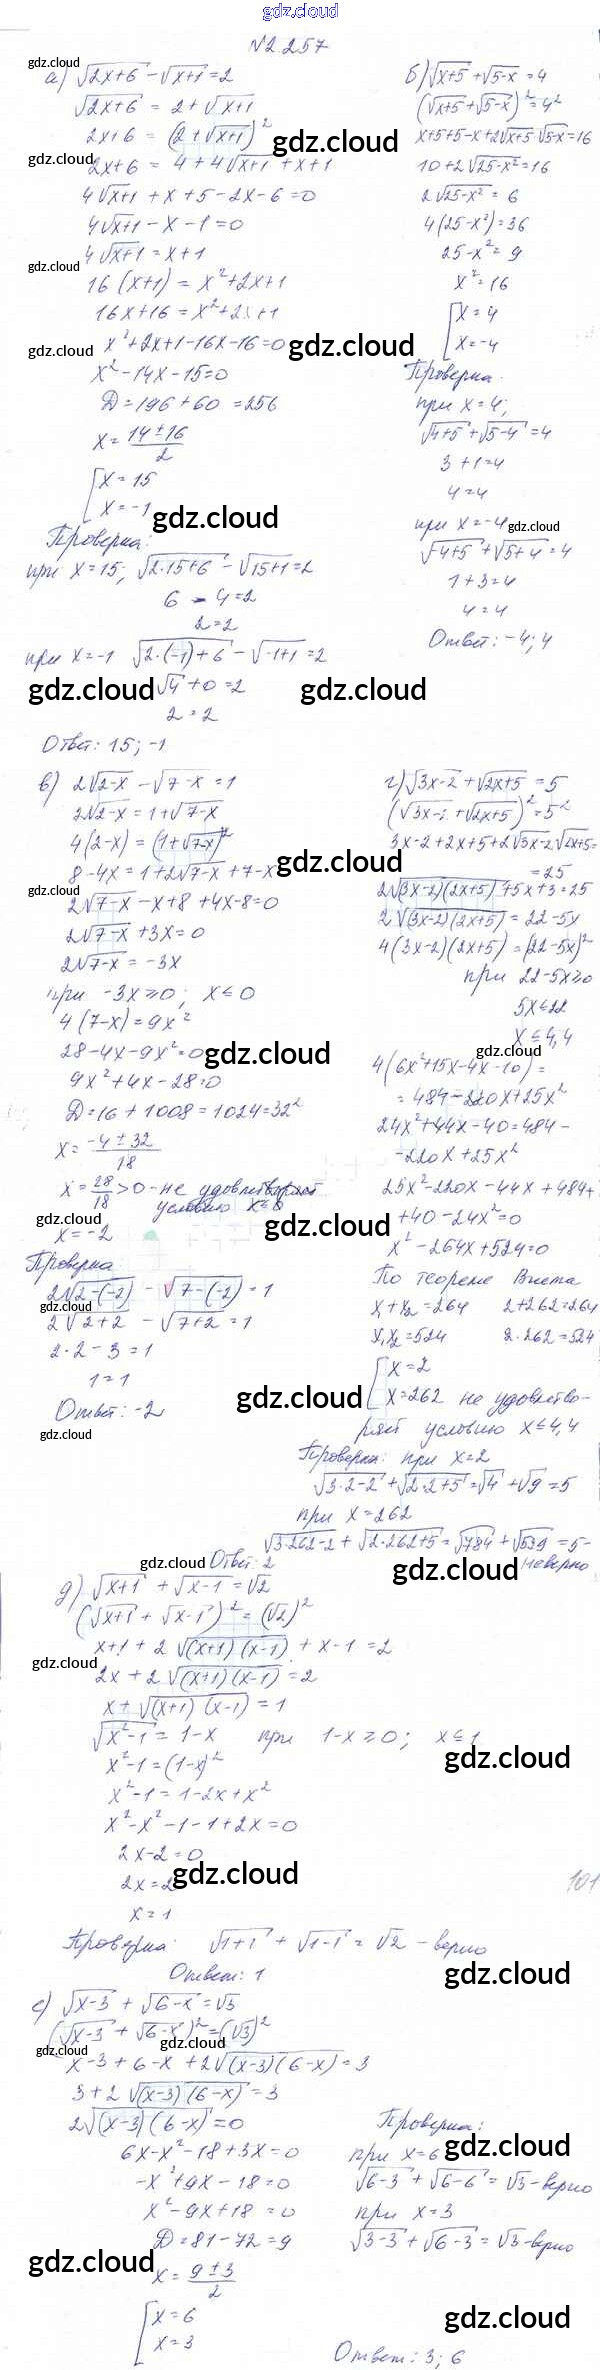 gdz.cloud
№2.257
gdz.cloud
а) √(2x+6) - √(x+1) = 2
√(2x+6) = 2 + √(x+1)
2x+6 = (2+√(x+1))²
gdz.cloud
gdz.cloud
2x+6 = 4+4√(x+1) + x+1
4√(x+1) + x + 5 - 2x - 6 = 0
4√(x+1) - x - 1 = 0
4√(x+1) = x+1
gdz.cloud
16(x+1) = x²+2x+1
16x+16 = x²+2x+1
gdz.cloud
x²+2x+1-16x-16=0
gdz.cloud
x²-14x-15=0
D=196+60=256
x = (14±16)/2
[x=15
x=-1
gdz.cloud
Проверка:
при x=15; √(2·15+6) - √(15+1) = 2
6 - 4 = 2
2=2
при x=-1 √(2·(-1)+6) - √(-1+1) = 2
gdz.cloud
√4 + 0 = 2
gdz.cloud
2=2
Ответ: 15; -1
б) √(x+5) + √(5-x) = 4
(√(x+5) + √(5-x))² = 4²
x+5+5-x+2√(x+5)√(5-x)=16
10+2√(25-x²)=16
2√(25-x²) = 6
4(25-x²)=36
25-x²=9
x²=16
[x=4
x=-4
Проверка.
при x=4;
√(4+5) + √(5-4) = 4
3+1=4
4=4
при x=-4
gdz.cloud
√(-4+5) + √(5+4) = 4
1+3=4
4=4
Ответ: -4; 4
в) 2√(2-x) - √(7-x) = 1
2√(2-x) = 1+√(7-x)
4(2-x) = (1+√(7-x))²
gdz.cloud
8-4x = 1+2√(7-x) + 7-x
gdz.cloud
2√(7-x) - x + 8 + 4x - 8 = 0
2√(7-x) + 3x = 0
2√(7-x) = -3x
при -3x ⩾ 0; x ≤ 0
4(7-x) = 9x²
gdz.cloud
28-4x-9x²=0
9x²+4x-28=0
D=16+1008=1024=32²
x = (-4±32)/18
x = 28/18 > 0 - не удовлетворяет
условию x≤0
gdz.cloud
gdz.cloud
x=-2
Проверка
2√(2-(-2)) - √(7-(-2)) = 1
gdz.cloud
2√(2+2) - √(7+2) = 1
2·2-3=1
1=1
gdz.cloud
Ответ: -2
gdz.cloud
г) √(3x-2) + √(2x+5) = 5
(√(3x-2) + √(2x+5))² = 5²
3x-2+2x+5+2√(3x-2)√(2x+5)=
=25
2√((3x-2)(2x+5)) + 5x+3=25
2√((3x-2)(2x+5)) = 22-5x
4(3x-2)(2x+5) = (22-5x)²
при 22-5x⩾0
5x≤22
x≤4,4
gdz.cloud
4(6x²+15x-4x-10) =
=484-220x+25x²
24x²+44x-40=484-
-220x+25x²
25x²-220x-44x+484+
+40-24x²=0
x²-264x+524=0
По теореме Виета
x₁+x₂=264 2+262=264
x₁x₂=524 2·262=524
[x=2
x=262 не удовлетво-
ряет условию x≤4,4
Проверка: при x=2
√(3·2-2) + √(2·2+5) = √4 + √9 = 5
при x=262
√(3·262-2) + √(2·262+5) = √784 + √529 = 5-
неверно
gdz.cloud
gdz.cloud
Ответ: 2
д) √(x+1) + √(x-1) = √2
(√(x+1) + √(x-1))² = (√2)²
x+1+2√((x+1)(x-1)) + x-1 = 2
gdz.cloud
2x+2√((x+1)(x-1)) = 2
x+√((x+1)(x-1)) = 1
√(x²-1) = 1-x при 1-x⩾0; x≤1
gdz.cloud
x²-1=(1-x)²
x²-1=1-2x+x²
x²-x²-1-1+2x=0
2x-2=0
gdz.cloud
2x=2
101
x=1
Проверка: √(1+1) + √(1-1) = √2 - верно
gdz.cloud
Ответ: 1
е) √(x-3) + √(6-x) = √3
(√(x-3) + √(6-x))² = (√3)²
gdz.cloud
gdz.cloud
x-3+6-x+2√((x-3)(6-x)) = 3
3+2√((x-3)(6-x)) = 3
2√((x-3)(6-x)) = 0
6x-x²-18+3x=0
-x²+9x-18=0
x²-9x+18=0
D=81-72=9
gdz.cloud
x = (9±3)/2
[x=6
x=3
Проверка:
при x=6
gdz.cloud
√(6-3) + √(6-6) = √3 - верно
при x=3
√(3-3) + √(6-3) = √3 - верно
gdz.cloud
Ответ: 3; 6